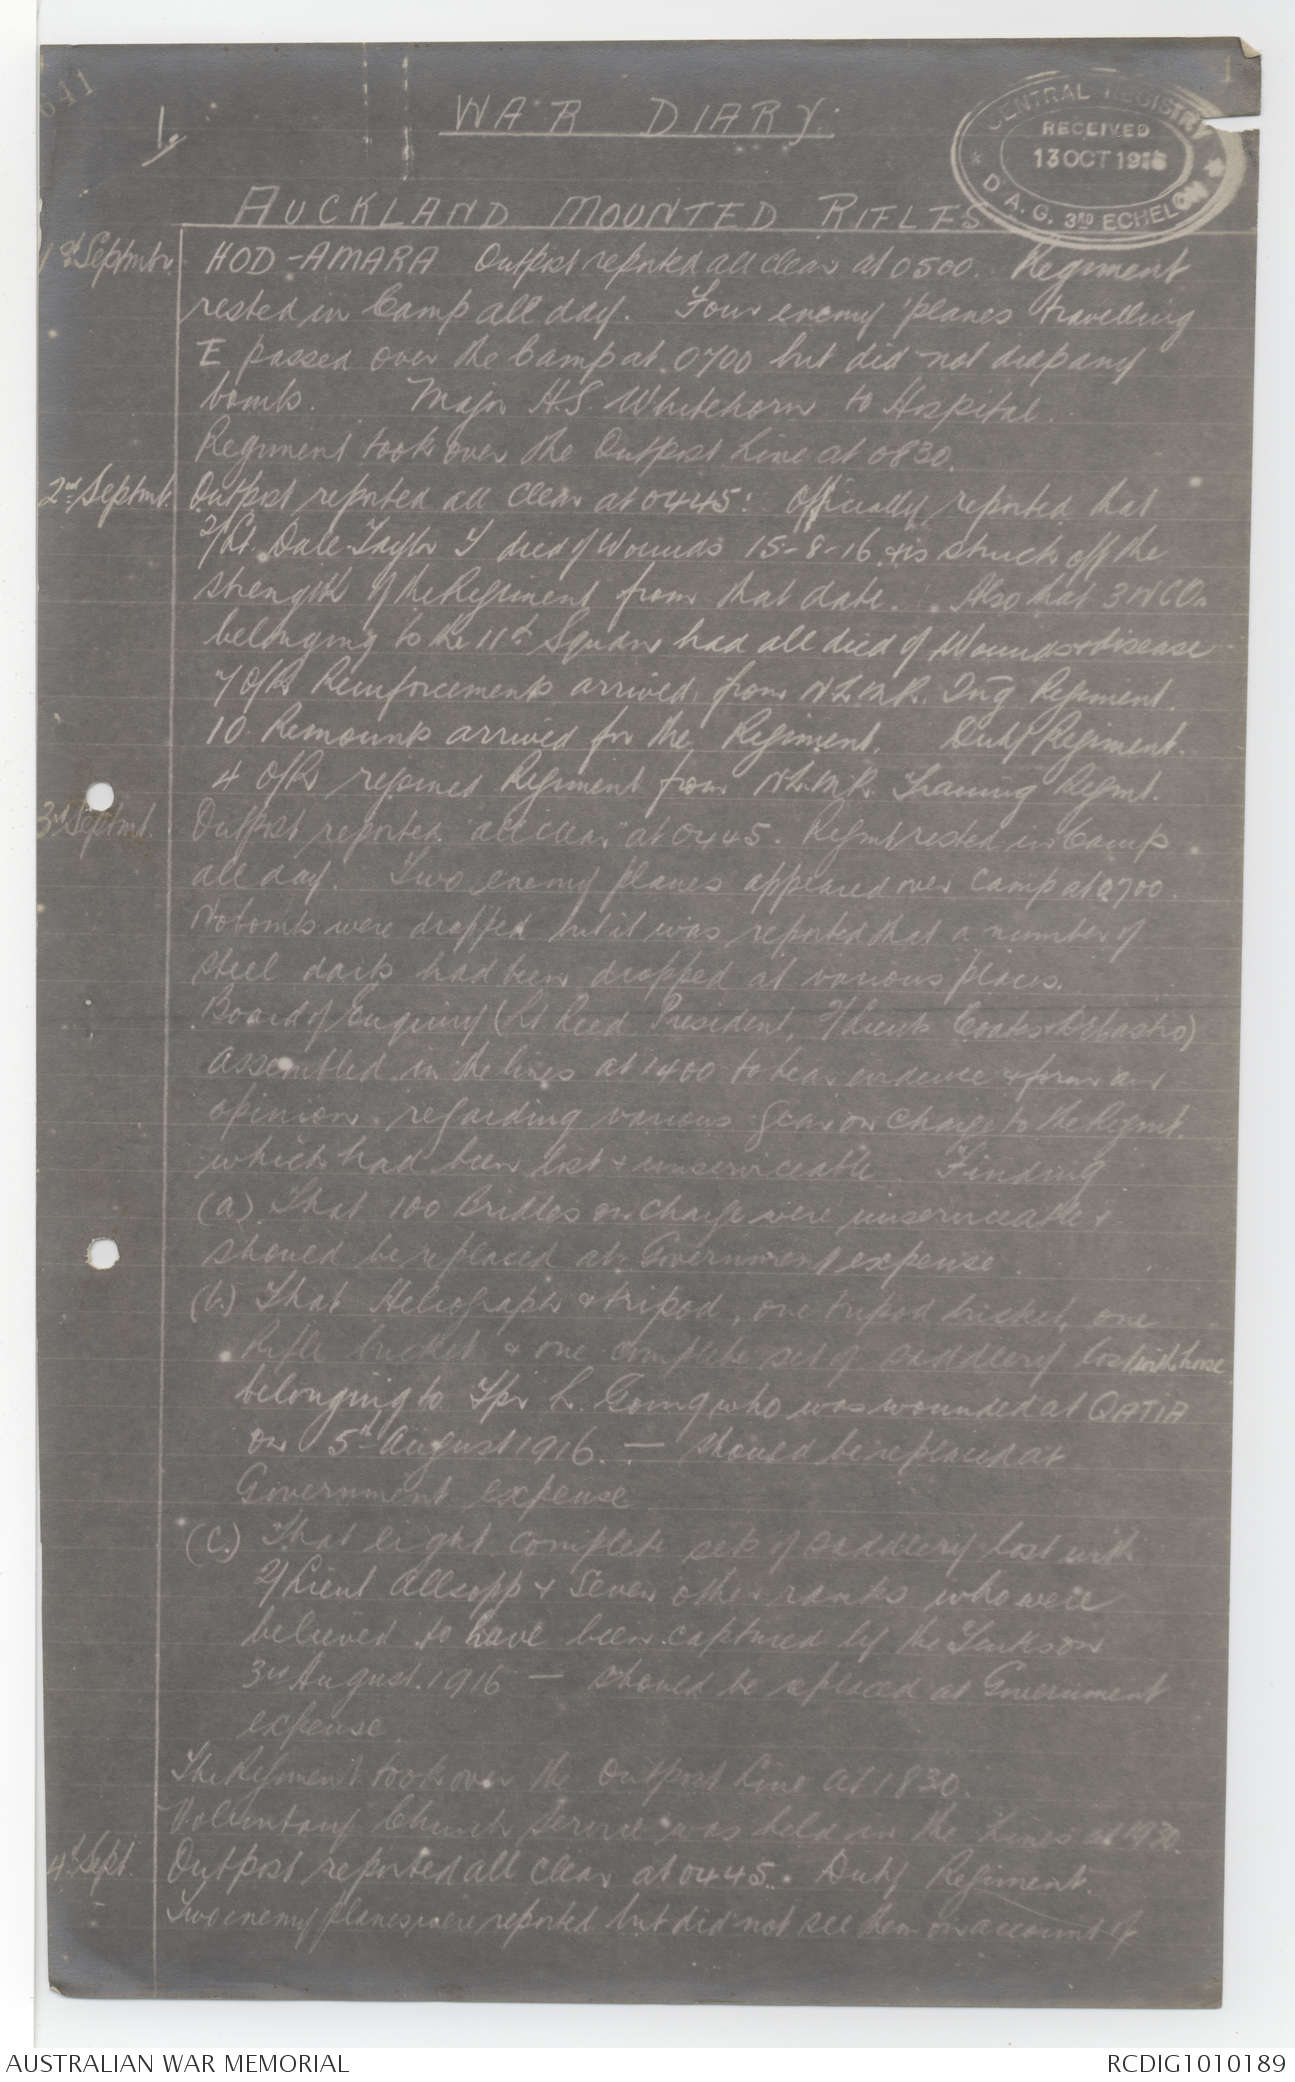 641
1.
WAR DIARY.
CENTRAL REGISTRY
RECEIVED
13 OCT 1916
D.A.G. 3RD ECHELON
AUCKLAND MOUNTED RIFLES
1st Septmbr HOD-AMARA Outpost reported all clear at 0500. Regiment
rested in Camp all day. Four enemy 'planes travelling
E passed over the Camp at 0700 but did not drop any
bombs. Major H.S. Whitehorn to Hospital.
Regiment took over the Outpost Line at 0830.
2nd Septmbr. Outpost reported all clear at 0445: Officially reported that
2/Lt. Dale-Taylor died of Wounds 15-8-16 & is struck off the
strength of the Regiment from that date. Also that 3 NCOs
belonging to the 11th Squdn had all died of Wounds & disease
7 O/Rs Reinforcements arrived from N.Z.M.R. Tng Regiment.
10 Remounts arrived for the Regiment. Duty Regiment.
4 O/Rs rejoined Regiment from N.Z.M.R. Training Regmt.
3rd Septmt. Outpost reported "all clear" at 0445. Regmt rested in Camp
all day. Two enemy planes appeared over Camp at 0700.
No bombs were dropped but it was reported that a number of
steel darts had been dropped at various places.
Board of Enquiry (Lt Reed President, 2/Lieuts Coates &
assembled in the lines at 1400 to hear evidence & form an
opinion regarding various gear on charge to the Regmt.
which had been lost & unserviceable Finding
(a) That 100 Bridles on charge were unserviceable &
should be replaced at Government expense.
(b.) That Heliograph & tripod, one tripod bucket, one
Rifle bucket & one complete set of saddlery lost with horse
belonging to Tpr L. Going who was wounded at QATIA
on 5th August 1916. — should be replaced at
Government expense
(c.) That eight complete sets of saddlery lost with
2/Lieut Allsopp & Seven other ranks who were
believed to have been captured by the Turks on
3rd August. 1916 — should be replaced at Government
expense.
The Regiment took over the Outpost Line at 1830.
Voluntary Church Service was held in the Lines at
4th Sept. Outpost reported all clear at 0445. Duty Regiment.
Two enemy planes were reported but did not see them on account of
AUSTRALIAN WAR MEMORIAL
RCDIG1010189